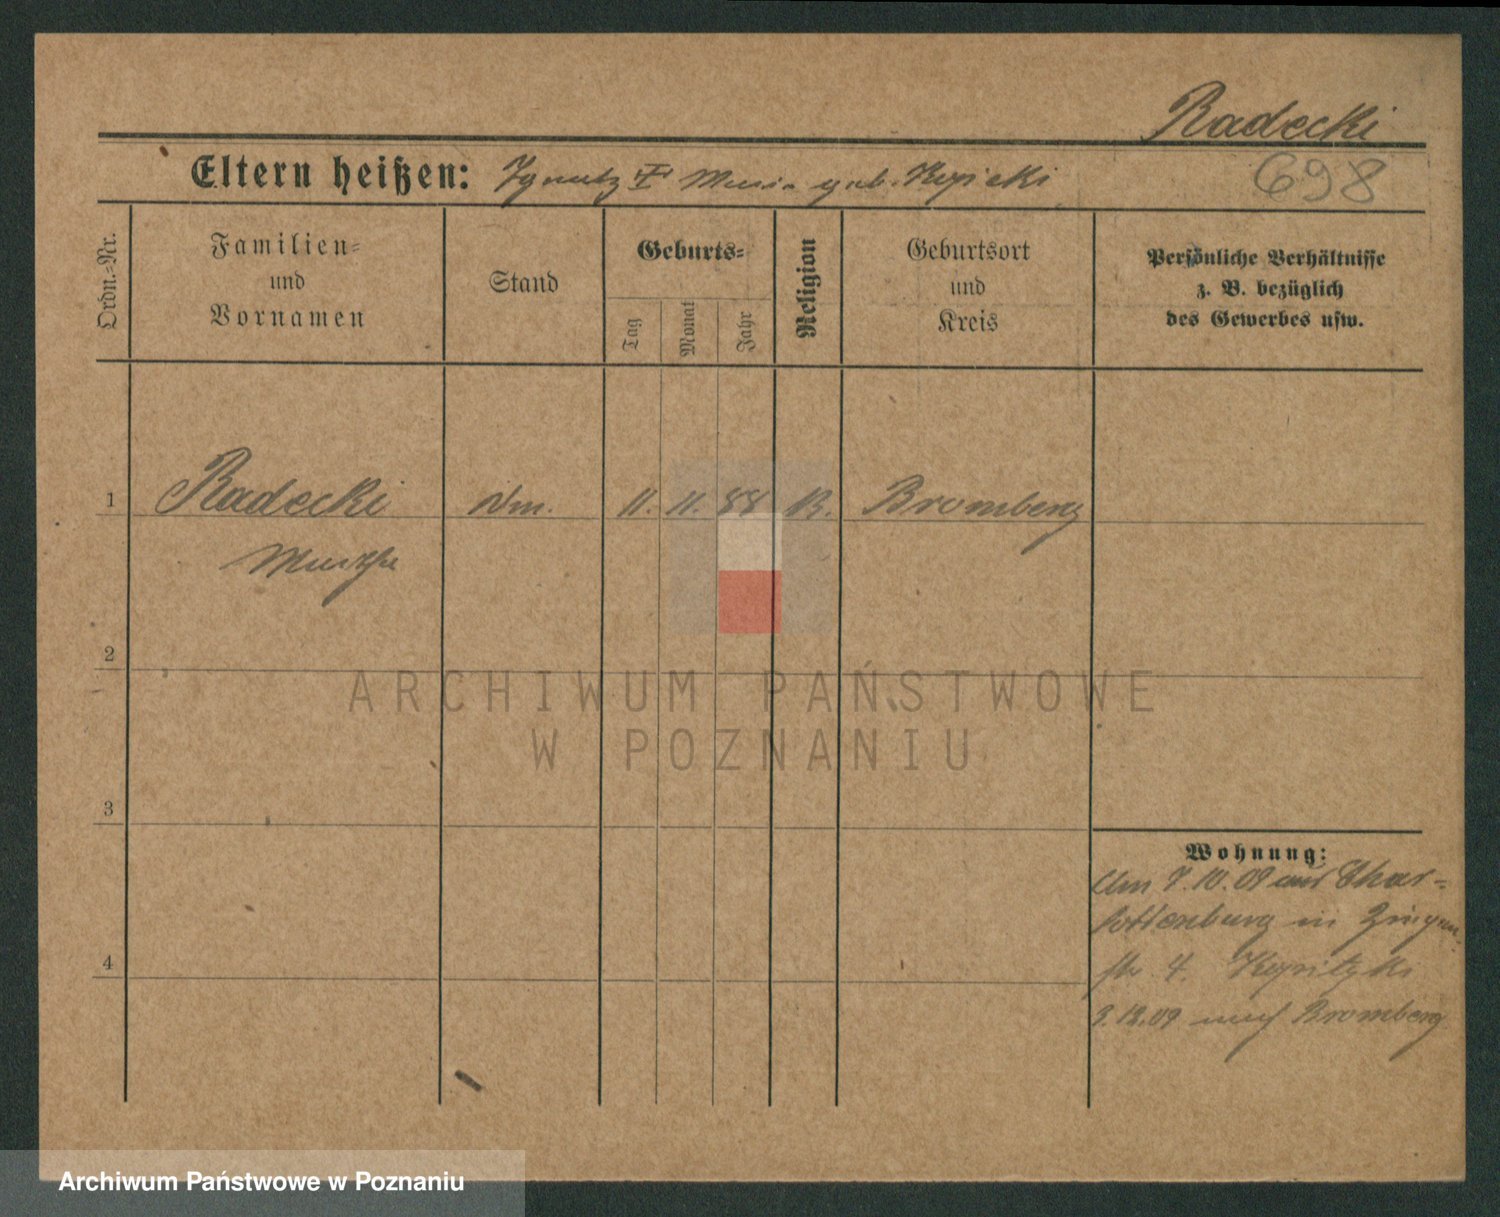 Radecki
698
Eltern heißen: Ignatz u. Maria geb. Kopicki
Ordn.-Nr.
Familien-
und
Vornamen
Stand
Geburts-
Tag
Monat
Jahr
Religion
Geburtsort
und
Kreis
Persönliche Verhältnisse
z. B. bezüglich
des Gewerbes usw.
1 Radecki 11. 11. 88 Bromberg
Martha
2
3
4
Wohnung:
Am 7.10.09 aus Char-
lottenburg in
str. 4.
3.12.09 nach Bromberg
ARCHIWUM PAŃSTWOWE
W POZNANIU
Archiwum Państwowe w Poznaniu